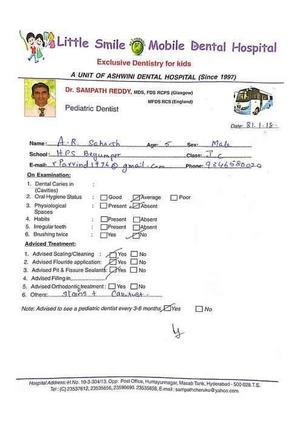 Little Smile Mobile Dental Hospital
Exclusive Dentistry for kids
A UNIT OF ASHWINI DENTAL HOSPITAL (Since 1997)
Dr. SAMPATH REDDY, MDS, FDS RCPS (Glasgow)
MFDS RCS (England)
Pediatric Dentist
Date: 31.1.18
Name: A.R Age: 5 Sex: Male
School: HPS Begumpet Class:
E-mail: @gmail.com Phone:
On Examination:
1. Dental Caries in (Cavities)
2. Oral Hygiene Status Good Average Poor
3. Physiological Spaces Present Absent
4. Habits Present Absent
5. Irregular teeth Present Absent
6. Brushing twice Yes No
Adviced Treatment:
1. Advised Scaling/Cleaning Yes No
2. Advised Flouride application: Yes No
3. Advised Pit & Fissure Sealants Yes No
4. Advised Filling in
5. Advised Orthodontic treatment Yes No
6. Others: stains +
Note: Advised to see a pediatric dentist every 3-6 months Yes No
Hospital Address: H.No. 10-3-304/13, Opp. Post Office, Humayunnagar, Masab Tank, Hyderabad - 500 028.T.S.
Tel: (C)